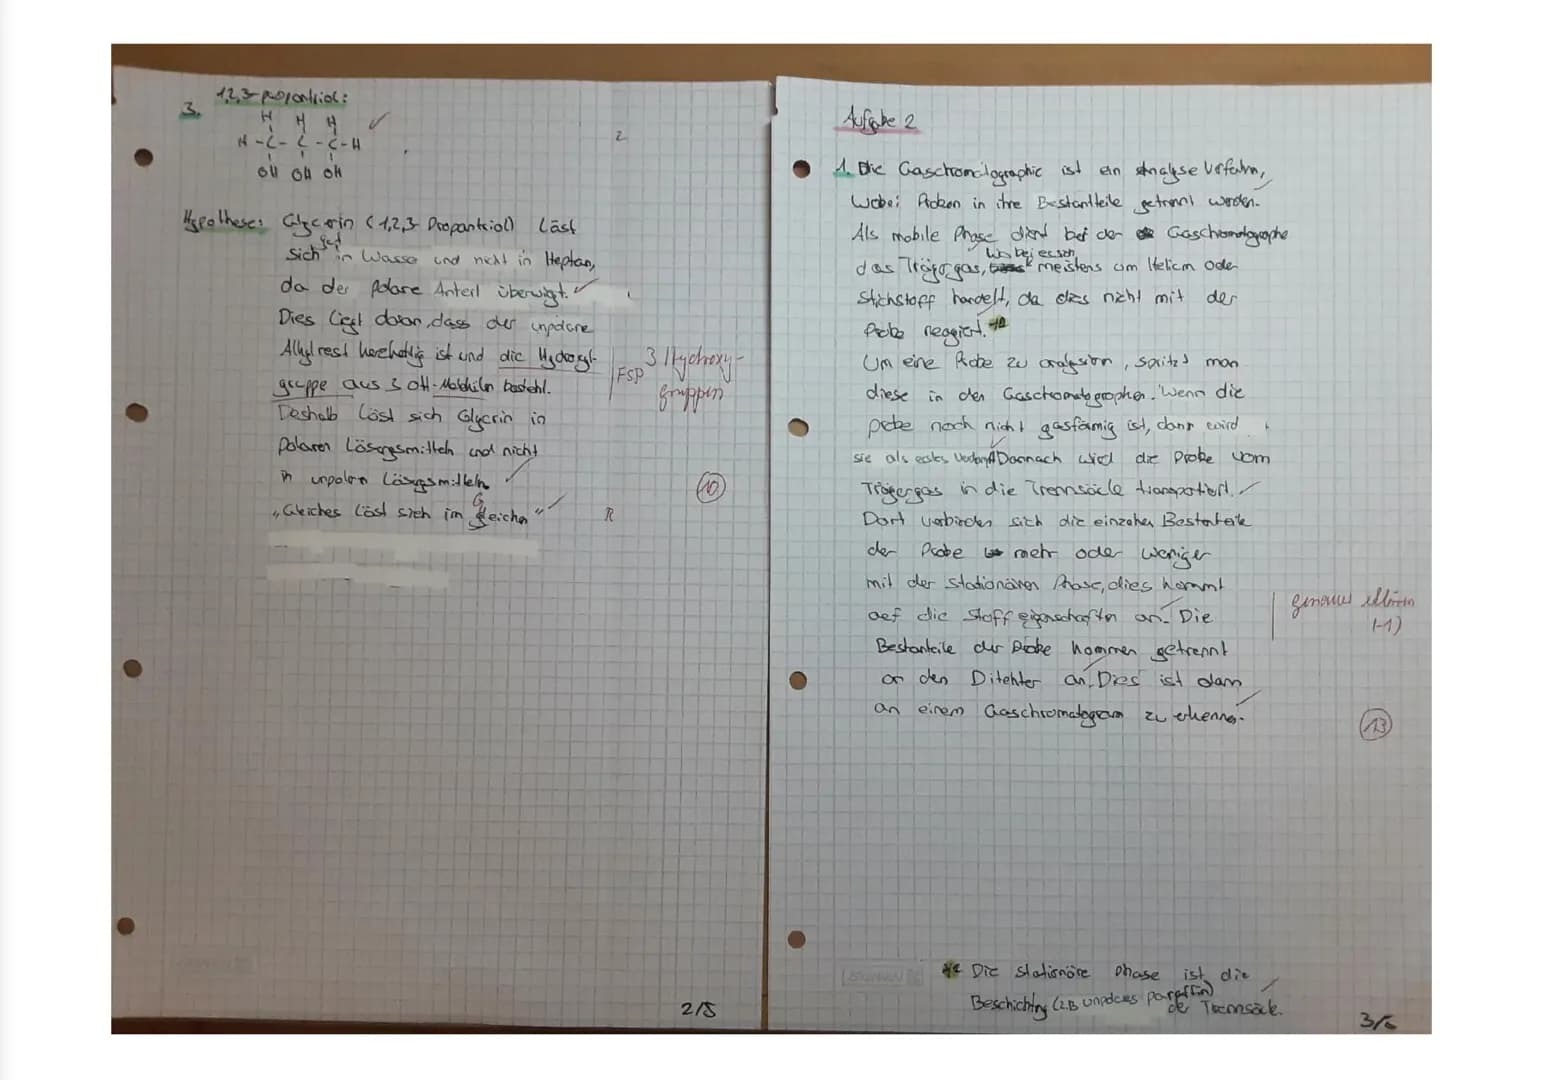 3. 1,2,3-propantriol:
H H H
H-C-C-C-H
OH OH OH
2
Hypothese: Glycerin (1,2,3-Propantriol) läst
sich gut in Wasser und nicht in Heptan,
da der polare Anteil überwigt.
Dies liegt daran, dass der unpolare
Alkylrest kurzkettig ist und die Hydroxyl-
gruppe aus 3 OH-Molekülen besteht.
FSP 3 Hydroxy-
gruppen
Deshalb löst sich Glycerin in
polaren Lösungsmitteln und nicht
in unpolaren Lösungsmitteln
10
„Gleiches löst sich im Gleichen"
R
2/5
Aufgabe 2
1. Die Gaschromatographie ist ein Analyse Verfahren,
wobei Proben in ihre Bestantteile getrennt werden.
Als mobile Phase dient bei der Gaschromatographe
das Trägergas, wobei es sich meistens um Helium oder
Stichstoff handelt, da dies nicht mit der
Probe reagiert. *2
Um eine Probe zu analysieren, spritzt man
diese in den Gaschromatographen. Wenn die
probe noch nicht gasförmig ist, dann wird
sie als erstes Danach wird die Probe vom
Trägergas in die Trennsäule transportiert.
Dort verbinden sich die einzelnen Bestanteile
der Probe mehr oder weniger
mit der stationären Phase, dies kommt
auf die Stoffeigenschaften an. Die
genauer erklären
(-1)
Bestanteile der Probe kommen getrennt
an den Ditekter an. Dies ist dann
an einem Gaschromatogram zu erkennen.
13
*2 Die stationäre Phase ist die
Beschichtng (z.B unpolares paraffin)
der Trennsäule.
3/6